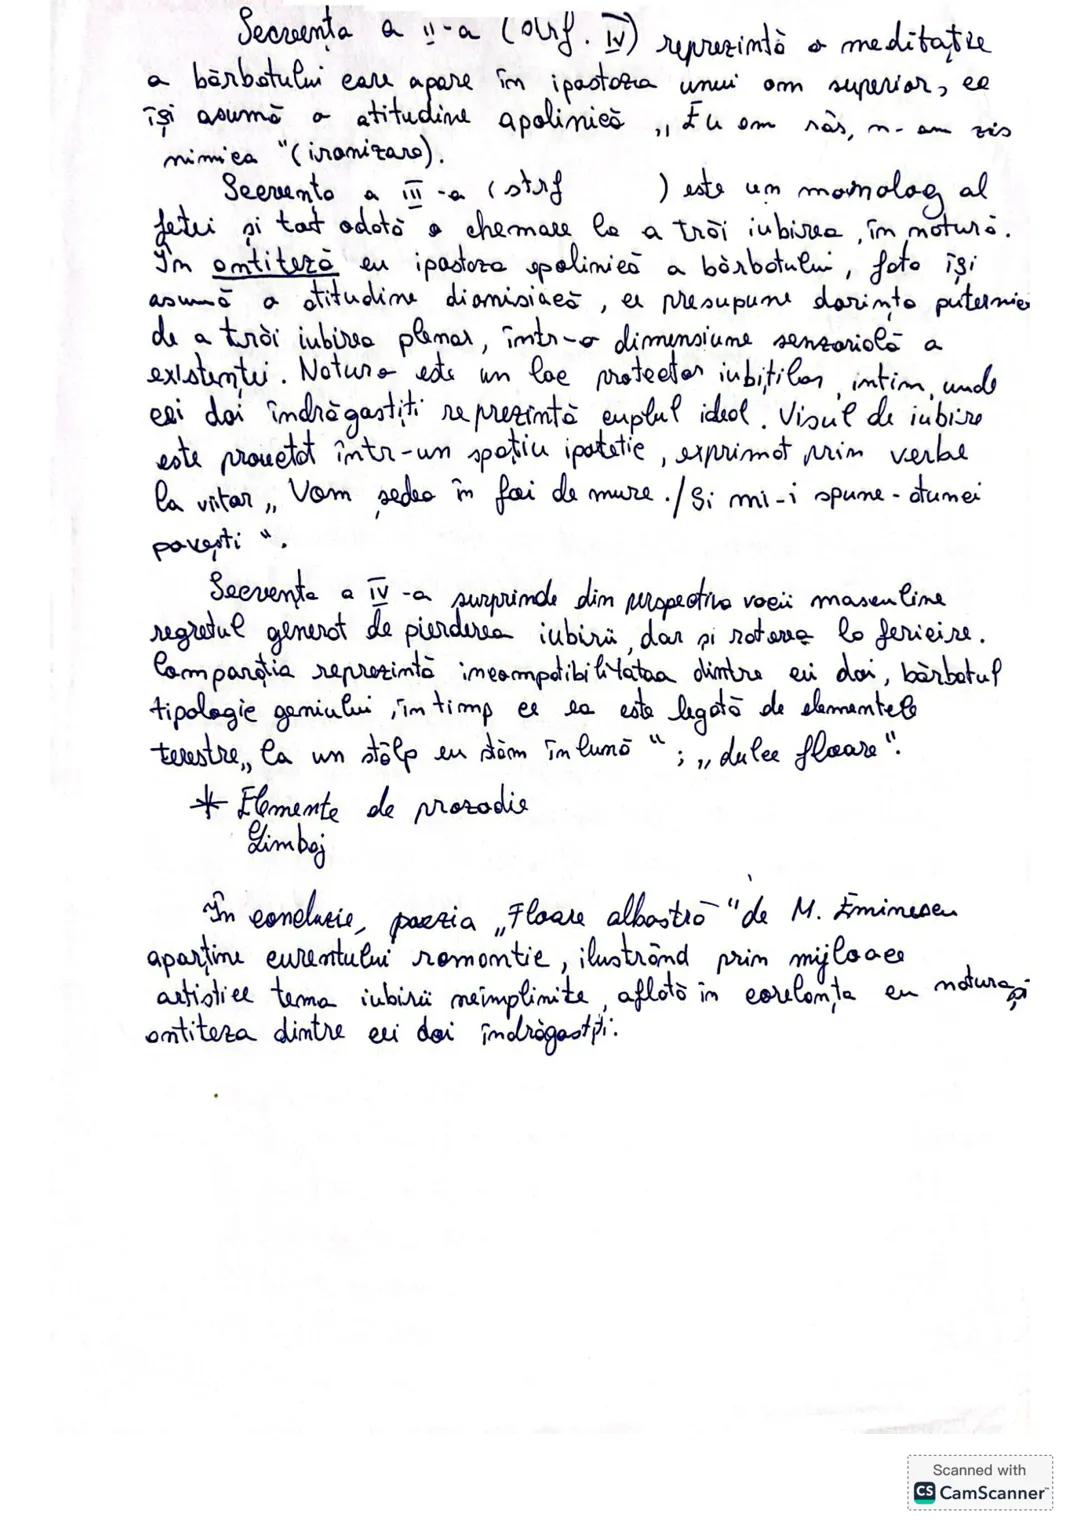 Secvența a II-a (strf. IV) reprezintă o meditație
a bărbatului care apare în ipostaza unui om superior, ce
își asumă o atitudine apolinică „Eu am râs, n-am zis
nimica" (ironizare).
Secvența a III-a (strf ) este un monolog al
fetei și tot odată o chemare la a trăi iubirea, în natură.
În antiteză cu ipostaza apolinică a bărbatului, fata își
asumă o atitudine dionisiacă, ce presupune dorința puternică
de a trăi iubirea plenar, într-o dimensiune senzorială a
existenței. Natura este un loc protector iubiților, intim, unde
cei doi îndrăgostiți reprezintă cuplul ideal. Visul de iubire
este proiectat într-un spațiu ipotetic, exprimat prin verbe
la viitor „Vom ședea în foi de mure./Și mi-i spune-atunci
povești".
Secvența a IV-a surprinde din perspectiva vocii masculine
regretul generat de pierderea iubirii, dar și ratarea la fericire.
Comparația reprezintă incompatibilitatea dintre cei doi, bărbatul
tipologie geniului, în timp ce ea este legată de elementele
terestre „Ca un stâlp eu stam în lună"; „dulce floare".
* Elemente de prozodie
Limbaj
În concluzie, poezia „Floare albastră" de M. Eminescu
aparține curentului romantic, ilustrând prin mijloace
artistice tema iubirii neîmplinite, aflată în corelanța cu natura și
antiteza dintre cei doi îndrăgostiți.
Scanned with
CS CamScanner